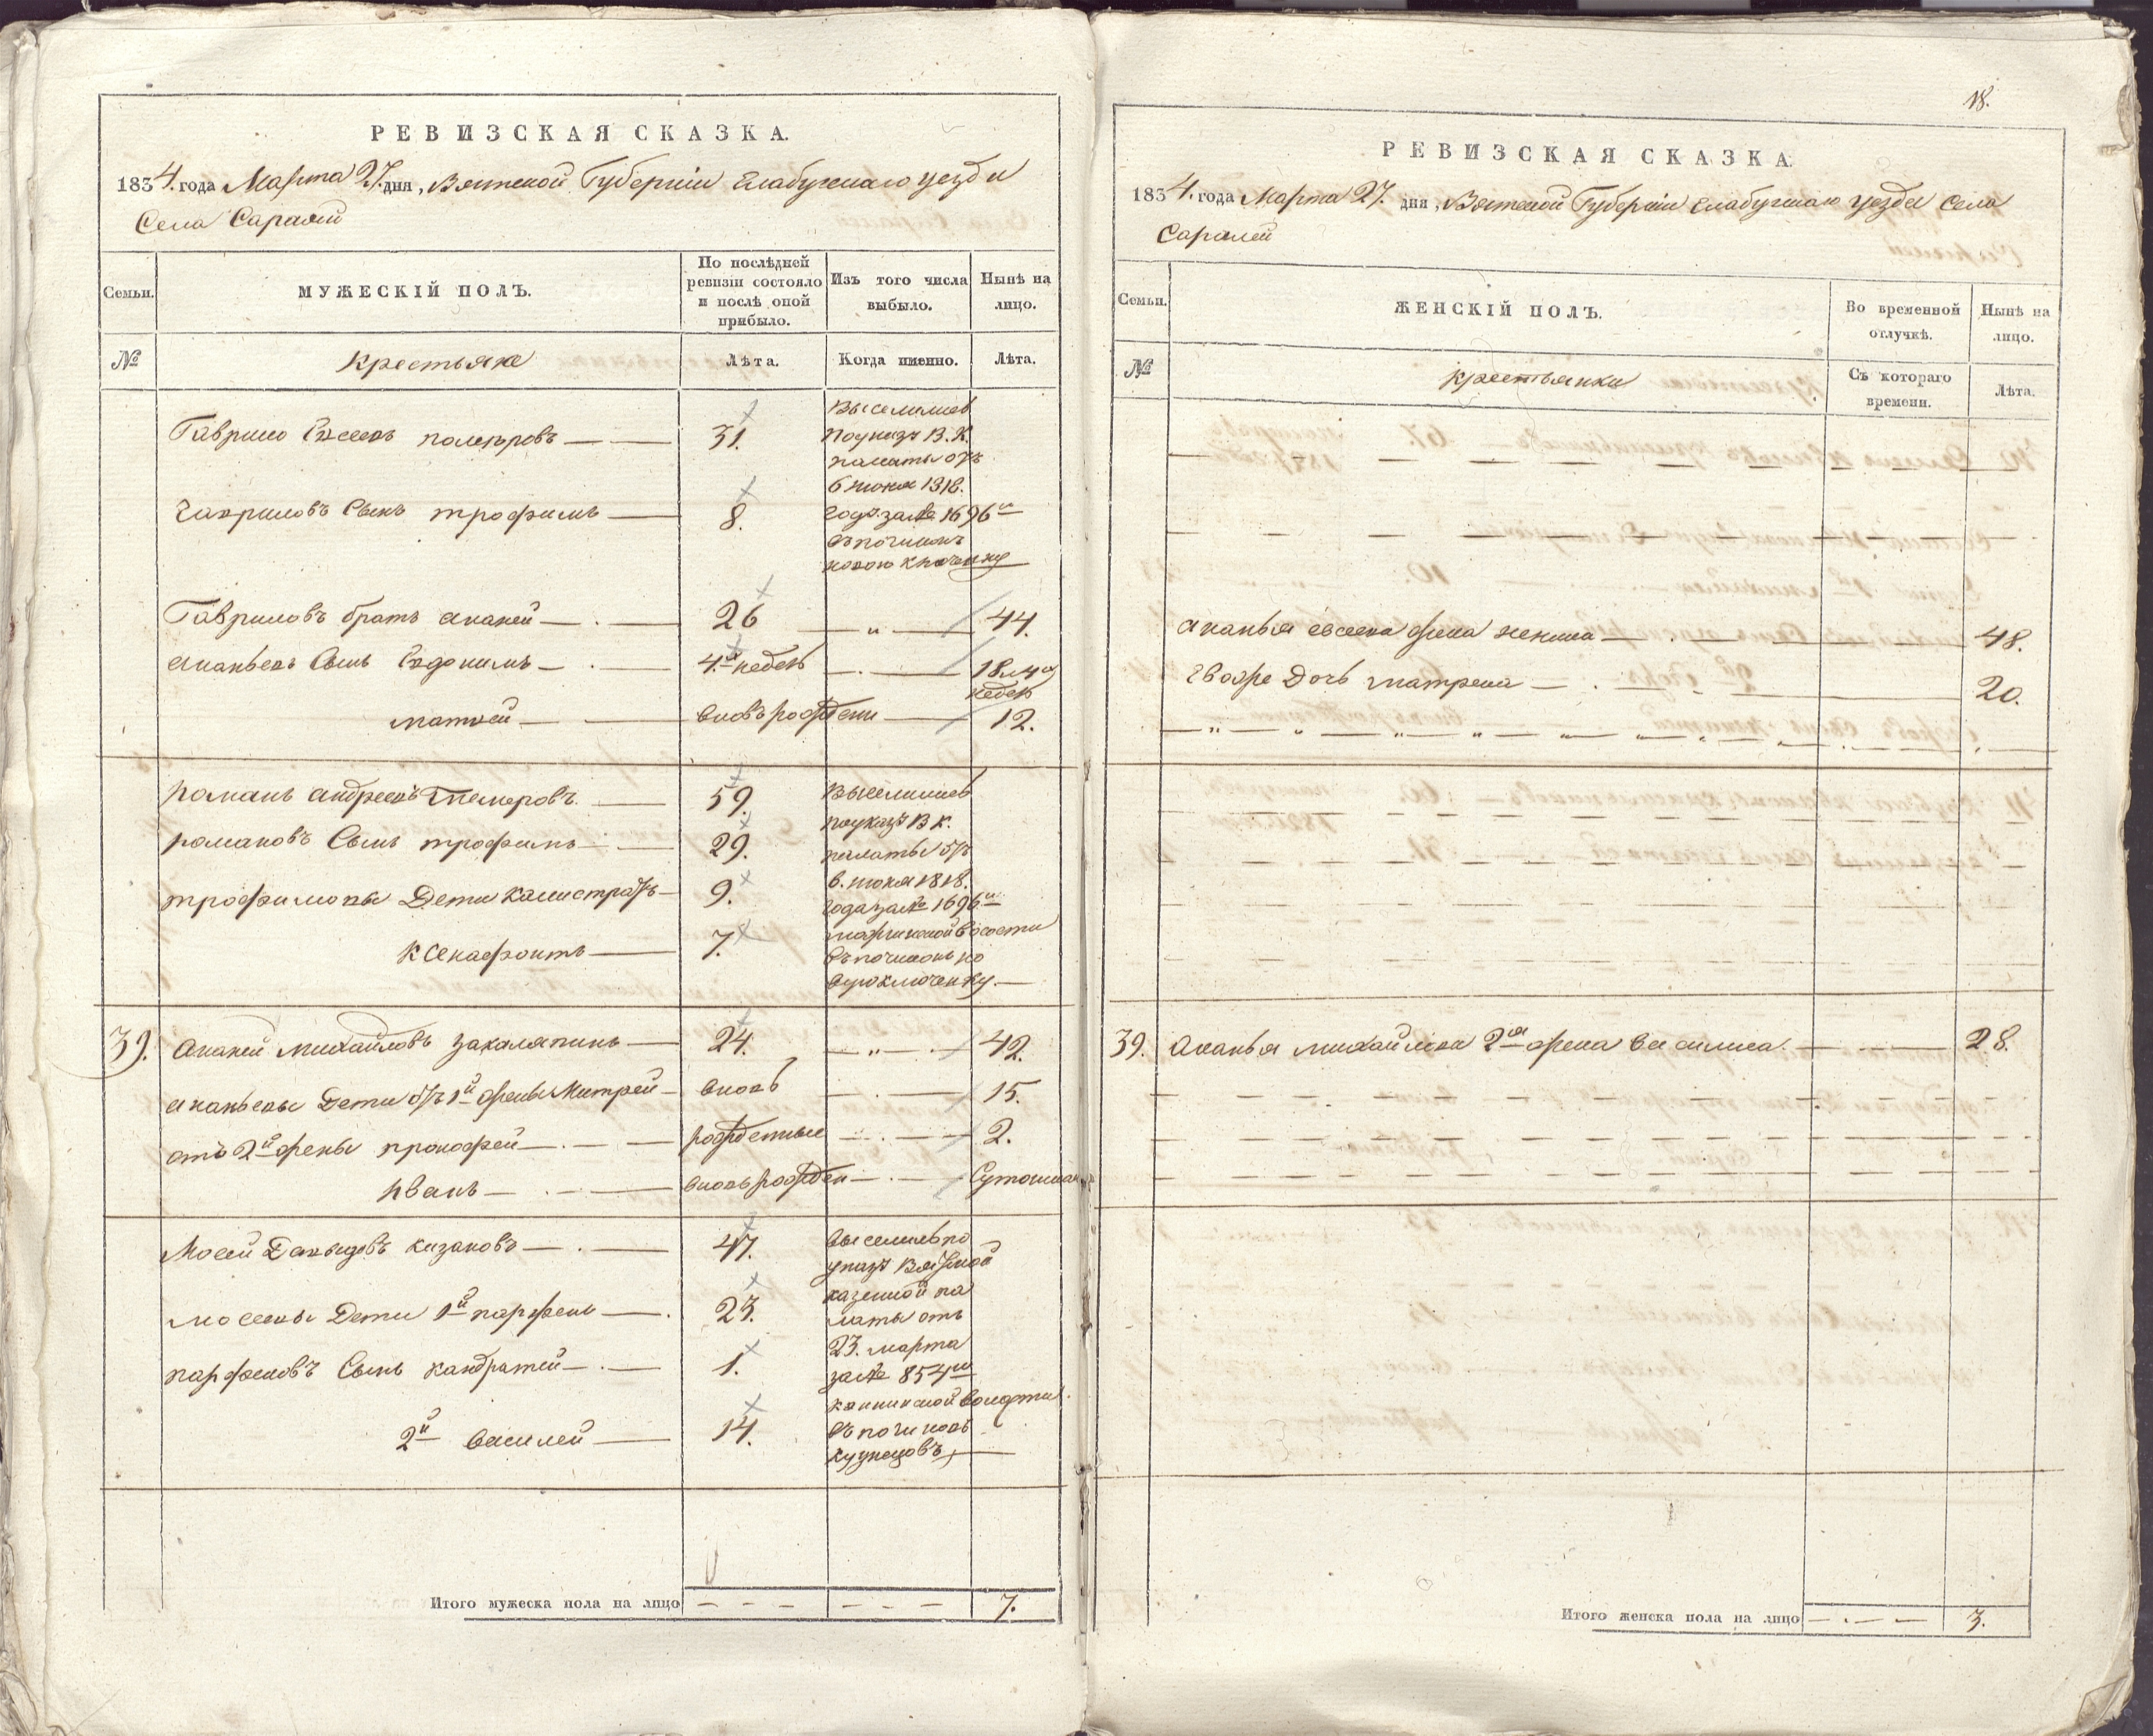 РЕВИЗСКАЯ СКАЗКА.
1834. года Марта 27. дня, Вятской Губерніи Елабужскаго уезда
Села Саралей
Семьи.
МУЖЕСКІЙ ПОЛЪ.
По послѣдней ревизіи состояло и послѣ оной прибыло.
Изъ того числа выбыло.
Нынѣ на лицо.
№
Крестьяне
Лѣта.
Когда именно.
Лѣта.
Гаврило Евсеевъ 31. Выселились
по указу В. К.
палаты отъ
6 июня 1818.
Гавриловъ Сынъ трофимъ 8. года за № 1696м
въ починокъ
новою ключевку
Гавриловъ братъ ананей 26 „ 44.
ананьевъ Сынъ Евдокимъ 4х недель 18 и 4х недель
матвей вновь рожденъ 12.
романъ андреевъ 59. Выселились
романовъ Сынъ трофимъ 29. по указу В К.
палаты отъ
трофимовы Дети Калистратъ 9. 6. июня 1818.
года за № 1696м
Ксенафонтъ 7. волости
въ починокъ но
вую ключевку.
39. Ананей михайловъ закаляпинъ 24. „ 42.
ананьевы Дети отъ 1й жены Митрей вновь 15.
отъ 2й жены прокофей рожденные 2.
Иванъ вновь рожден
Мосей Давыдовъ казаковъ 47. выселилъ по
указу Вятской
казенной па
мосеевы Дети 1й парфенъ 23. латы отъ
23. марта
парфеновъ Сынъ кандратей 1. за № 854м
волости
2й василей 14. въ починокъ
кузнецовъ
Итого мужеска пола на лицо 7.
18.
РЕВИЗСКАЯ СКАЗКА.
1834. года Марта 27. дня, Вятской Губерніи Елабужскаго уезда Села
Саралей
Семьи.
ЖЕНСКІЙ ПОЛЪ.
Во временной отлучкѣ.
Нынѣ на лицо.
№
крестьянки
Съ котораго времени.
Лѣта.
ананья евсеева жена 48.
Дочь матрена 20.
39. Ананья михайлова 2я жена василиса. 28.
Итого женска пола на лицо 3.